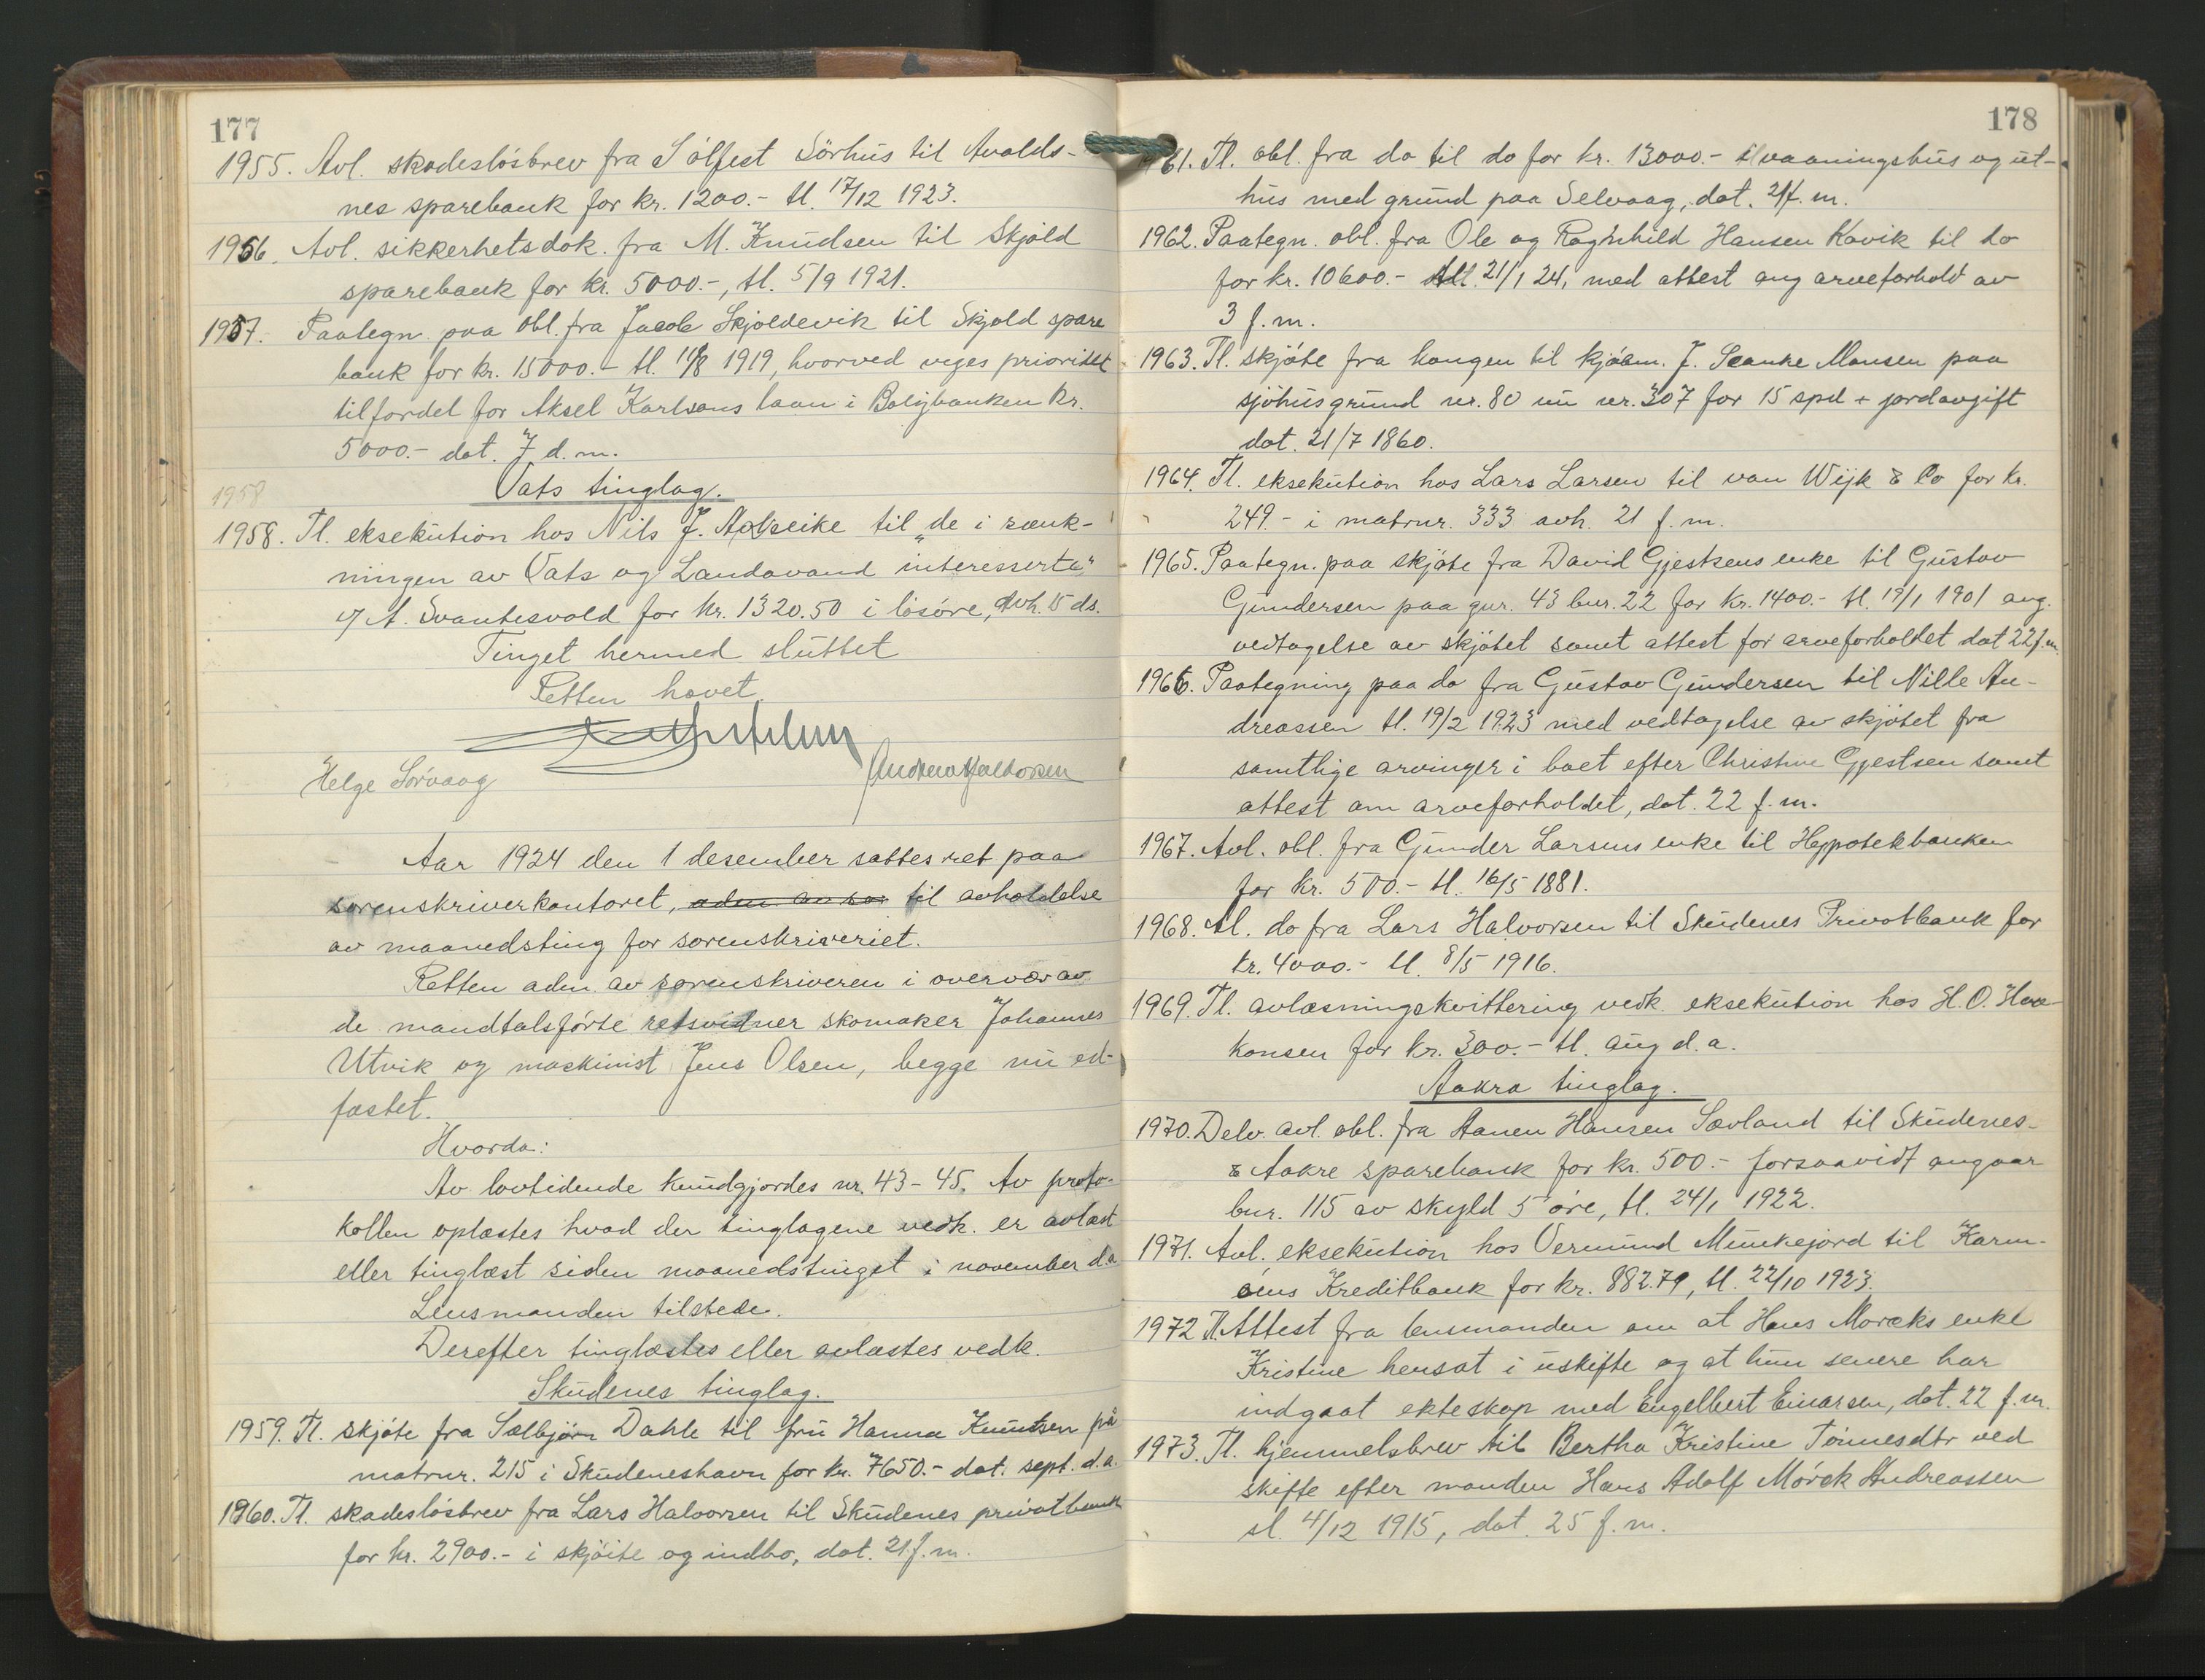 177
1955. Avl. skadesløsbrev fra Sålfest Sörhus til Avalds-
nes sparebank for kr. 1200.- tl. 17/12 1923.
1956. Avl. sikkerhetsdok. fra M. Knudsen til Skjold
sparebank for kr. 5000.-, tl. 5/9 1921.
1957. Paategn. paa obl. fra Jacob Skjoldevik til Skjold spare
bank for kr. 15000.- tl. 11/8 1919, hvorved viges prioritet
til fordel for Aksel Karlsens laan i Boligbanken kr.
5000.- dat. 7 d.m.
1958
Vats tinglag.
1958. Tl. eksekution hos Nils J. til "de i sænk-
ningen av Vats og Landavand interesserte"
v/ A. Svantesvold for kr. 1320.50 i løsøre, avh. 15 ds.
Tinget hermed sluttet
Retten hævet
Helge Sørvaag
Aar 1924 den 1 desember sattes ret paa
sorenskriverkontoret, til avholdelse
av maanedsting for sorenskriveriet.
Retten adm. av sorenskriveren i overvær av
de mandtalsførte retsvidner skomaker Johannes
Utvik og maskinist Jens Olsen, begge nu ed-
fæstet.
Hvorda:
Av lovtidende kundgjordes nr. 43-45. Av proto-
kollen oplæstes hvad der tinglagene vedk. er avlæst
eller tinglæst siden maanedstinget i november d.a
Lensmanden tilstede.
Derefter tinglæstes eller avlæstes vedk.
Skudenes tinglag.
1959. Tl. skjøte fra Sælbjørn Dahle til fru Hanna Knutsen på
matrnr. 215 i Skudeneshavn for kr. 7650.- dat. sept. d.a.
1960. Tl. skadesløsbrev fra Lars Halvorsen til Skudenes privatbank
for kr. 2900.- i skjøite og indbo, dat. 21 f.m.
178
1961. Tl. obl. fra do til do for kr. 13000.- i vaaningshus og ut-
hus med grund paa Selvaag, dat. 21 f.m.
1962. Paategn. obl. fra Ole og Ragnhild Hansen Kavik til do
for kr. 10600.- tl. 21/1 24, med attest ang arveforhold av
3 f.m.
1963. Tl. skjøte fra kongen til kjøbm. J. Monsen paa
sjøhusgrund nr. 80 nu nr. 307 for 15 spd + jordavgift
dat. 21/7 1860.
1964. Tl. eksekution hos Lars Larsen til van Wijk & Co for kr.
249.- i matrnr. 333 avh. 21 f.m.
1965. Paategn. paa skjøte fra David Gjestsens enke til Gustav
Gundersen paa gnr. 43 bnr. 22 for kr. 1400.- tl. 19/1 1901 ang.
vedtagelse av skjøtet samt attest for arveforholdet dat 22 f.m.
1966. Paategning paa do fra Gustav Gundersen til Nille An-
dreassen tl. 19/2 1923 med vedtagelse av skjøtet fra
samtlige arvinger i boet efter Christine Gjestsen samt
attest om arveforholdet, dat. 22 f.m.
1967. Avl. obl. fra Gunder Larsens enke til Hyppotekbanken
for kr. 500.- tl. 16/5 1881.
1968. Avl. do fra Lars Halvorsen til Skudenes Privatbank for
kr. 4000.- tl. 8/5 1916.
1969. Tl. avlæsningskvittering vedk. eksekution hos H.O. Haa-
konsen for kr. 300.- tl. aug d.a.
Aakra tinglag.
1970. Delv. avl. obl. fra Aanen Hansen Sævland til Skudenes-
& Aakre sparebank for kr. 500.- forsaavidt angaar
bnr. 115 av skyld 5 øre, tl. 24/1 1922.
1971. Avl. eksekution hos Vermund Munkejord til Karm-
øens Kreditbank for kr. 882.79, tl. 22/10 1923.
1972 Tl. Attest fra lensmanden om at Hans Mørcks enke
Kristine hensat i uskifte og at hun senere har
indgaat ekteskap med Engelbert Einarsen, dat. 22 f.m.
1973. Tl. hjemmelsbrev til Bertha Kristine Tønnesdtr ved
skifte efter manden Hans Adolf Mørck Andreassen
sl. 4/12 1915, dat. 25 f.m.